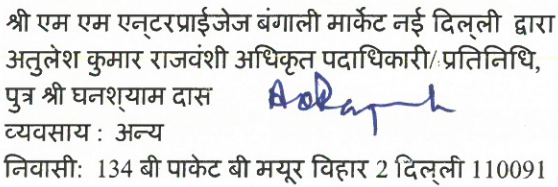 श्री एम एम एन्टरप्राईजेज बंगाली मार्केट नई दिल्ली द्वारा
अतुलेश कुमार राजवंशी अधिकृत पदाधिकारी/ प्रतिनिधि,
पुत्र श्री घनश्याम दास
व्यवसाय : अन्य
निवासी: 134 बी पाकेट बी मयूर विहार 2 दिल्ली 110091